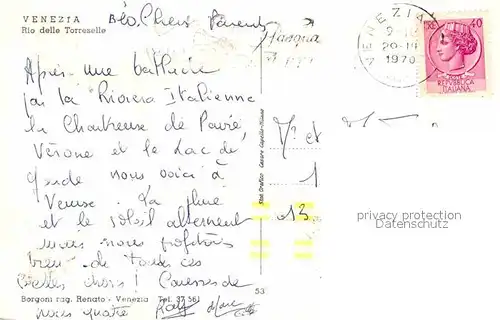 VENEZIA
Rio delle Torreselle
Chers Parents
Pasqua
VENEZIA
20-III
1970
40
REPUBBLICA
ITALIANA
Après une
par la Riviera Italienne
la Chartreuse de Pavie,
Vérone et le Lac de
Garde nous voici à
Venise. La pluie
et le soleil alternent
mais nous profitons
bien de toutes ces
Belles choses! Caresses de
nous quatre
Mr et
1
13
Fot. Grafico Cesare Capello-Milano
privacy protection
Datenschutz
53
Borgoni rag. Renato - Venezia Tel. 37 561